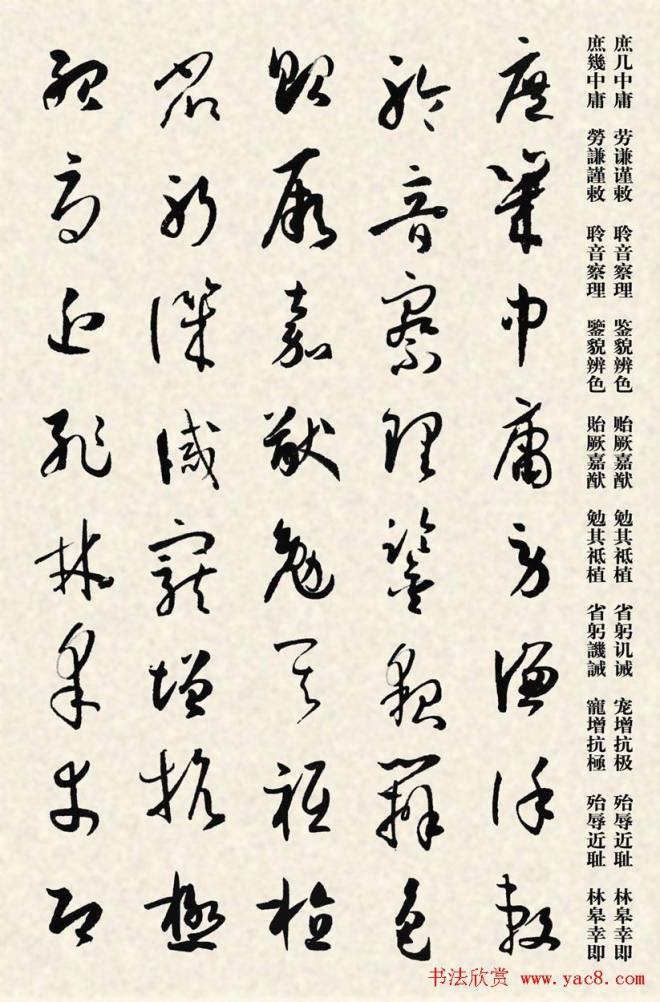 庶几中庸 劳谦谨敕 聆音察理 鉴貌辨色 贻厥嘉猷 勉其祗植 省躬讥诫 宠增抗极 殆辱近耻 林皋幸即
庶幾中庸 勞謙謹敕 聆音察理 鑒貌辨色 貽厥嘉猷 勉其祗植 省躬譏誡 寵增抗極 殆辱近恥 林皋幸即
庶幾中庸勞謙謹敕
聆音察理鑒貌辨色
貽厥嘉猷勉其祗植
省躬譏誡寵增抗極
殆辱近恥林皋幸即
书法欣赏 www.yac8.com